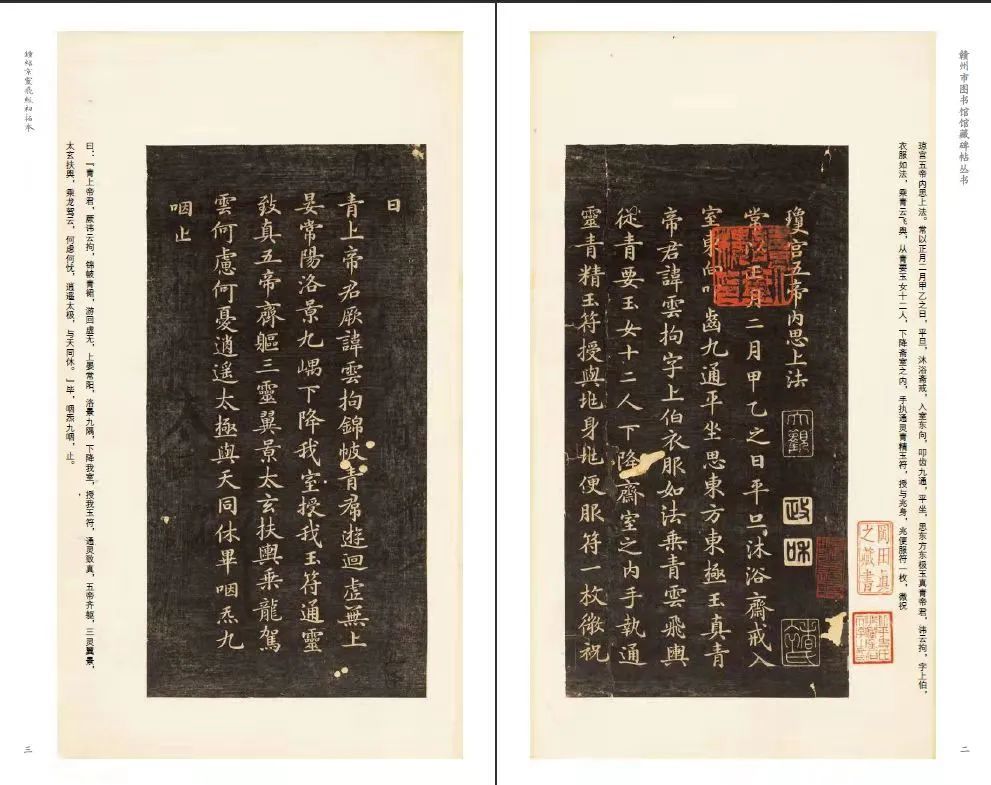 赣州市图书馆馆藏碑帖丛书
琼宫五帝内思上法。常以正月二月甲乙之日，平旦，沐浴斋戒，入室东向，叩齿九通，平坐，思东方东极玉真青帝君，讳云拘，字上伯，
衣服如法，乘青云飞舆，从青要玉女十二人，下降斋室之内，手执通灵青精玉符，授与兆身，兆便服符一枚，微祝
瓊宫五帝内思上法
大觀
政
和
常以正月二月甲乙之日平旦沐浴齋戒入
室東向叩齒九通平坐思東方東極玉真青
帝君諱雲拘字上伯衣服如法乗青雲飛輿
従青要玉女十二人下降齋室之内手執通
靈青精玉符授與兆身兆便服符一枚微祝
之藏書
二
曰
青上帝君厥諱雲拘錦帔青帬遊迴虛無上
晏常陽洛景九嵎下降我室授我玉符通靈
致真五帝齊軀三靈翼景太玄扶輿乗龍駕
雲何慮何憂逍遥太極與天同休畢咽炁九
咽止
曰：「青上帝君，厥讳云拘，锦帔青裙，游回虚无，上晏常阳，洛景九隅，下降我室，授我玉符，通灵致真，五帝齐躯，三灵翼景，
太玄扶舆，乘龙驾云，何虑何忧，逍遥太极，与天同休。」毕，咽炁九咽，止。
三